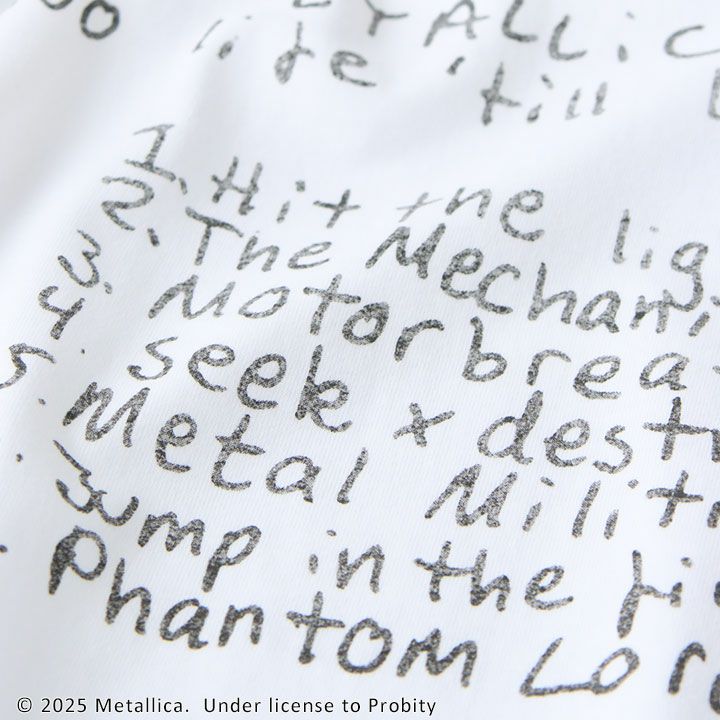 life 'till
1. Hit the lig
2. The Mechani
3. Motorbrea
4. seek + dest
5. Metal Milit
Jump in the fi
Phantom Lor
© 2025 Metallica. Under license to Probity